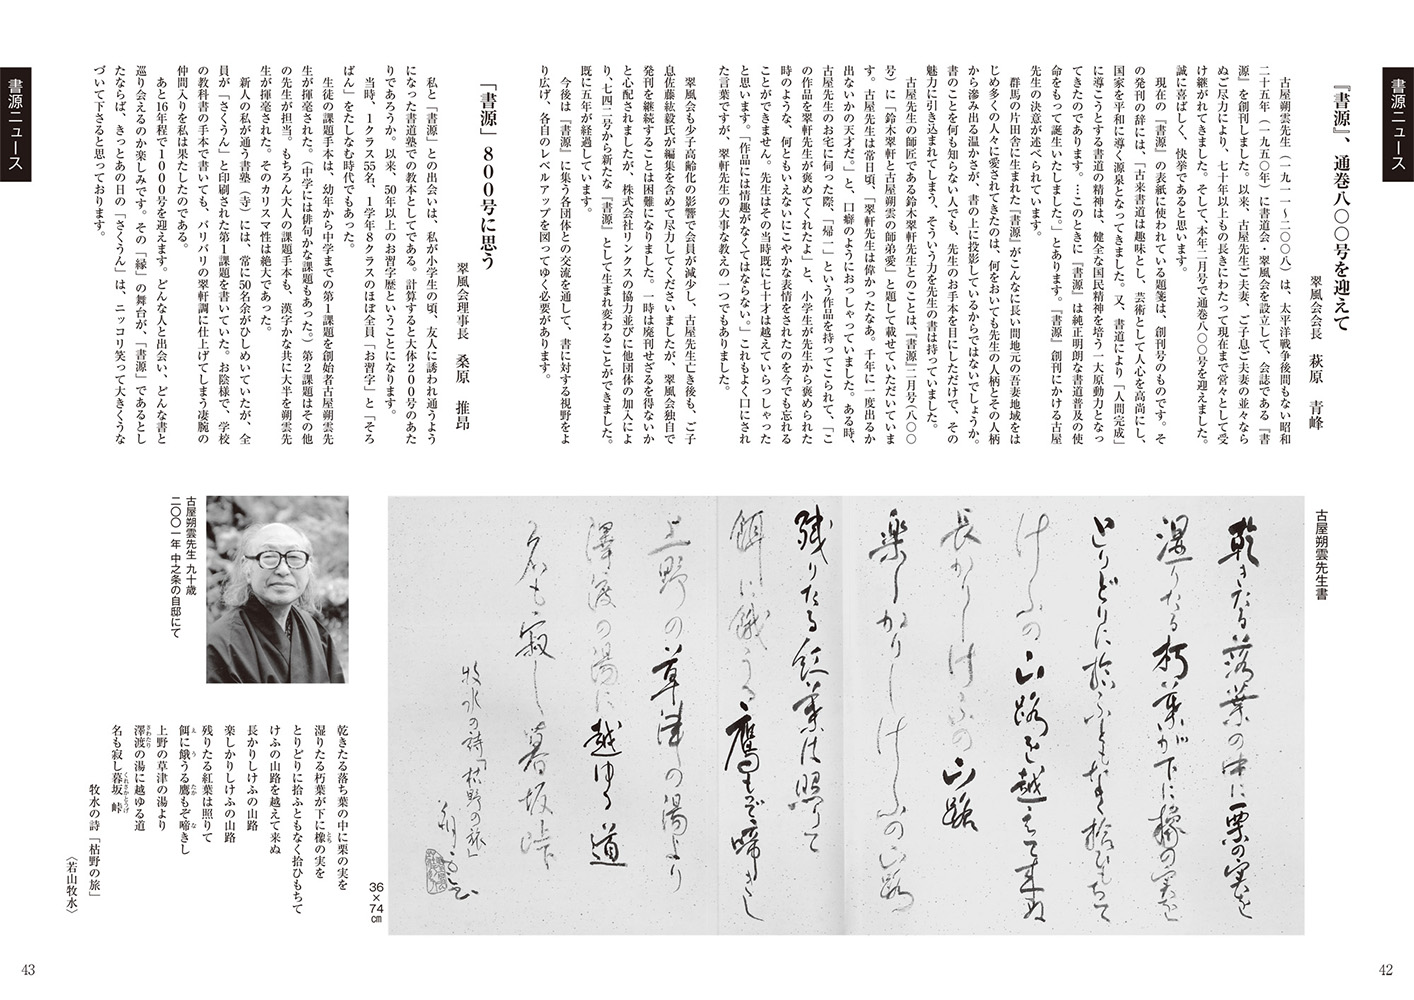 書源ニュース
『書源』、通巻八〇〇号を迎えて
翠風会会長　萩原　青峰
古屋朔雲先生（一九一一〜二〇〇八）は、太平洋戦争後間もない昭和
二十五年（一九五〇年）に書道会・翠風会を設立して、会誌である『書
源』を創刊しました。以来、古屋先生ご夫妻、ご子息ご夫妻の並々なら
ぬご尽力により、七十年以上もの長きにわたって現在まで営々として受
け継がれてきました。そして、本年二月号で通巻八〇〇号を迎えました。
誠に喜ばしく、快挙であると思います。
現在の『書源』の表紙に使われている題箋は、創刊号のものです。そ
の発刊の辞には、「古来書道は趣味とし、芸術として人心を高尚にし、
国家を平和に導く源泉となってきました。又、書道により「人間完成」
に導こうとする書道の精神は、健全な国民精神を培う一大原動力となっ
てきたのであります。…このときに『書源』は純正明朗な書道普及の使
命をもって誕生いたしました。」とあります。『書源』創刊にかける古屋
先生の決意が述べられています。
群馬の片田舎に生まれた『書源』がこんなに長い間地元の吾妻地域をは
じめ多くの人々に愛されてきたのは、何をおいても先生の人柄とその人柄
から滲み出る温かさが、書の上に投影しているからではないでしょうか。
書のことを何も知らない人でも、先生のお手本を目にしただけで、その
魅力に引き込まれてしまう、そういう力を先生の書は持っていました。
古屋先生の師匠である鈴木翠軒先生とのことは、『書源』二月号（八〇〇
号）に「鈴木翠軒と古屋朔雲の師弟愛」と題して載せていただいていま
す。古屋先生は常日頃、「翠軒先生は偉かったなあ。千年に一度出るか
出ないかの天才だ。」と、口癖のようにおっしゃっていました。ある時、
古屋先生のお宅に伺った際、「帰一」という作品を持ってこられて、「こ
の作品を翠軒先生が褒めてくれたよ」と、小学生が先生から褒められた
時のような、何ともいえないにこやかな表情をされたのを今でも忘れる
ことができません。先生はその当時既に七十才は越えていらっしゃった
と思います。「作品には情趣がなくてはならない。」これもよく口にされ
た言葉ですが、翠軒先生の大事な教えの一つでもありました。
翠風会も少子高齢化の影響で会員が減少し、古屋先生亡き後も、ご子
息佐藤紘毅氏が編集を含めて尽力してくださいましたが、翠風会独自で
発刊を継続することは困難になりました。一時は廃刊せざるを得ないか
と心配されましたが、株式会社リンクスの協力並びに他団体の加入によ
り、七四二号から新たな『書源』として生まれ変わることができました。
既に五年が経過しています。
今後は『書源』に集う各団体との交流を通して、書に対する視野をよ
り広げ、各自のレベルアップを図ってゆく必要があります。
「書源」８００号に思う
翠風会理事長　桑原　推昂
私と「書源」との出会いは、私が小学生の頃、友人に誘われ通うよう
になった書道塾での教本としてである。計算すると大体２００号のあた
りであろうか。以来、50年以上のお習字歴ということになります。
当時、１クラス55名、１学年８クラスのほぼ全員「お習字」と「そろ
ばん」をたしなむ時代でもあった。
生徒の課題手本は、幼年から中学までの第１課題を創始者古屋朔雲先
生が揮毫された。（中学には俳句かな課題もあった。）第２課題はその他
の先生が担当。もちろん大人の課題手本も、漢字かな共に大半を朔雲先
生が揮毫された。そのカリスマ性は絶大であった。
新人の私が通う書塾（寺）には、常に50名余がひしめいていたが、全
員が「さくうん」と印刷された第１課題を書いていた。お陰様で、学校
の教科書の手本で書いても、バリバリの翠軒調に仕上げてしまう凄腕の
仲間入りを私は果たしたのである。
あと16年程で１０００号を迎えます。どんな人と出会い、どんな書と
巡り会えるのか楽しみです。その「縁」の舞台が、「書源」であるとし
たならば、きっとあの日の「さくうん」は、ニッコリ笑って大きくうな
づいて下さると思っております。
書源ニュース
古屋朔雲先生書
乾きたる落葉の中に栗の実を
湿りたる朽葉が下に橡の実を
とりどりに拾ふともなく拾ひもちて
けふの山路を越えて来ぬ
長かりしけふの山路
楽しかりしけふの山路
残りたる紅葉は照りて
餌に餓うる鷹もぞ啼きし
上野の草津の湯より
澤渡の湯に越ゆる道
名も寂し暮坂峠
牧水の詩「枯野の旅」
朔雲
36×74㎝
古屋朔雲先生 九十歳
二〇〇一年 中之条の自邸にて
乾きたる落ち葉の中に栗の実を
湿りたる朽葉が下に橡の実を
とち
とりどりに拾ふともなく拾ひもちて
けふの山路を越えて来ぬ
長かりしけふの山路
楽しかりしけふの山路
残りたる紅葉は照りて
餌に餓うる鷹もぞ啼きし
え　う　たか　な
上野の草津の湯より
澤渡の湯に越ゆる道
さわたり
名も寂し暮坂 峠
くれさかとうげ
牧水の詩「枯野の旅」
〈若山牧水〉
42
43